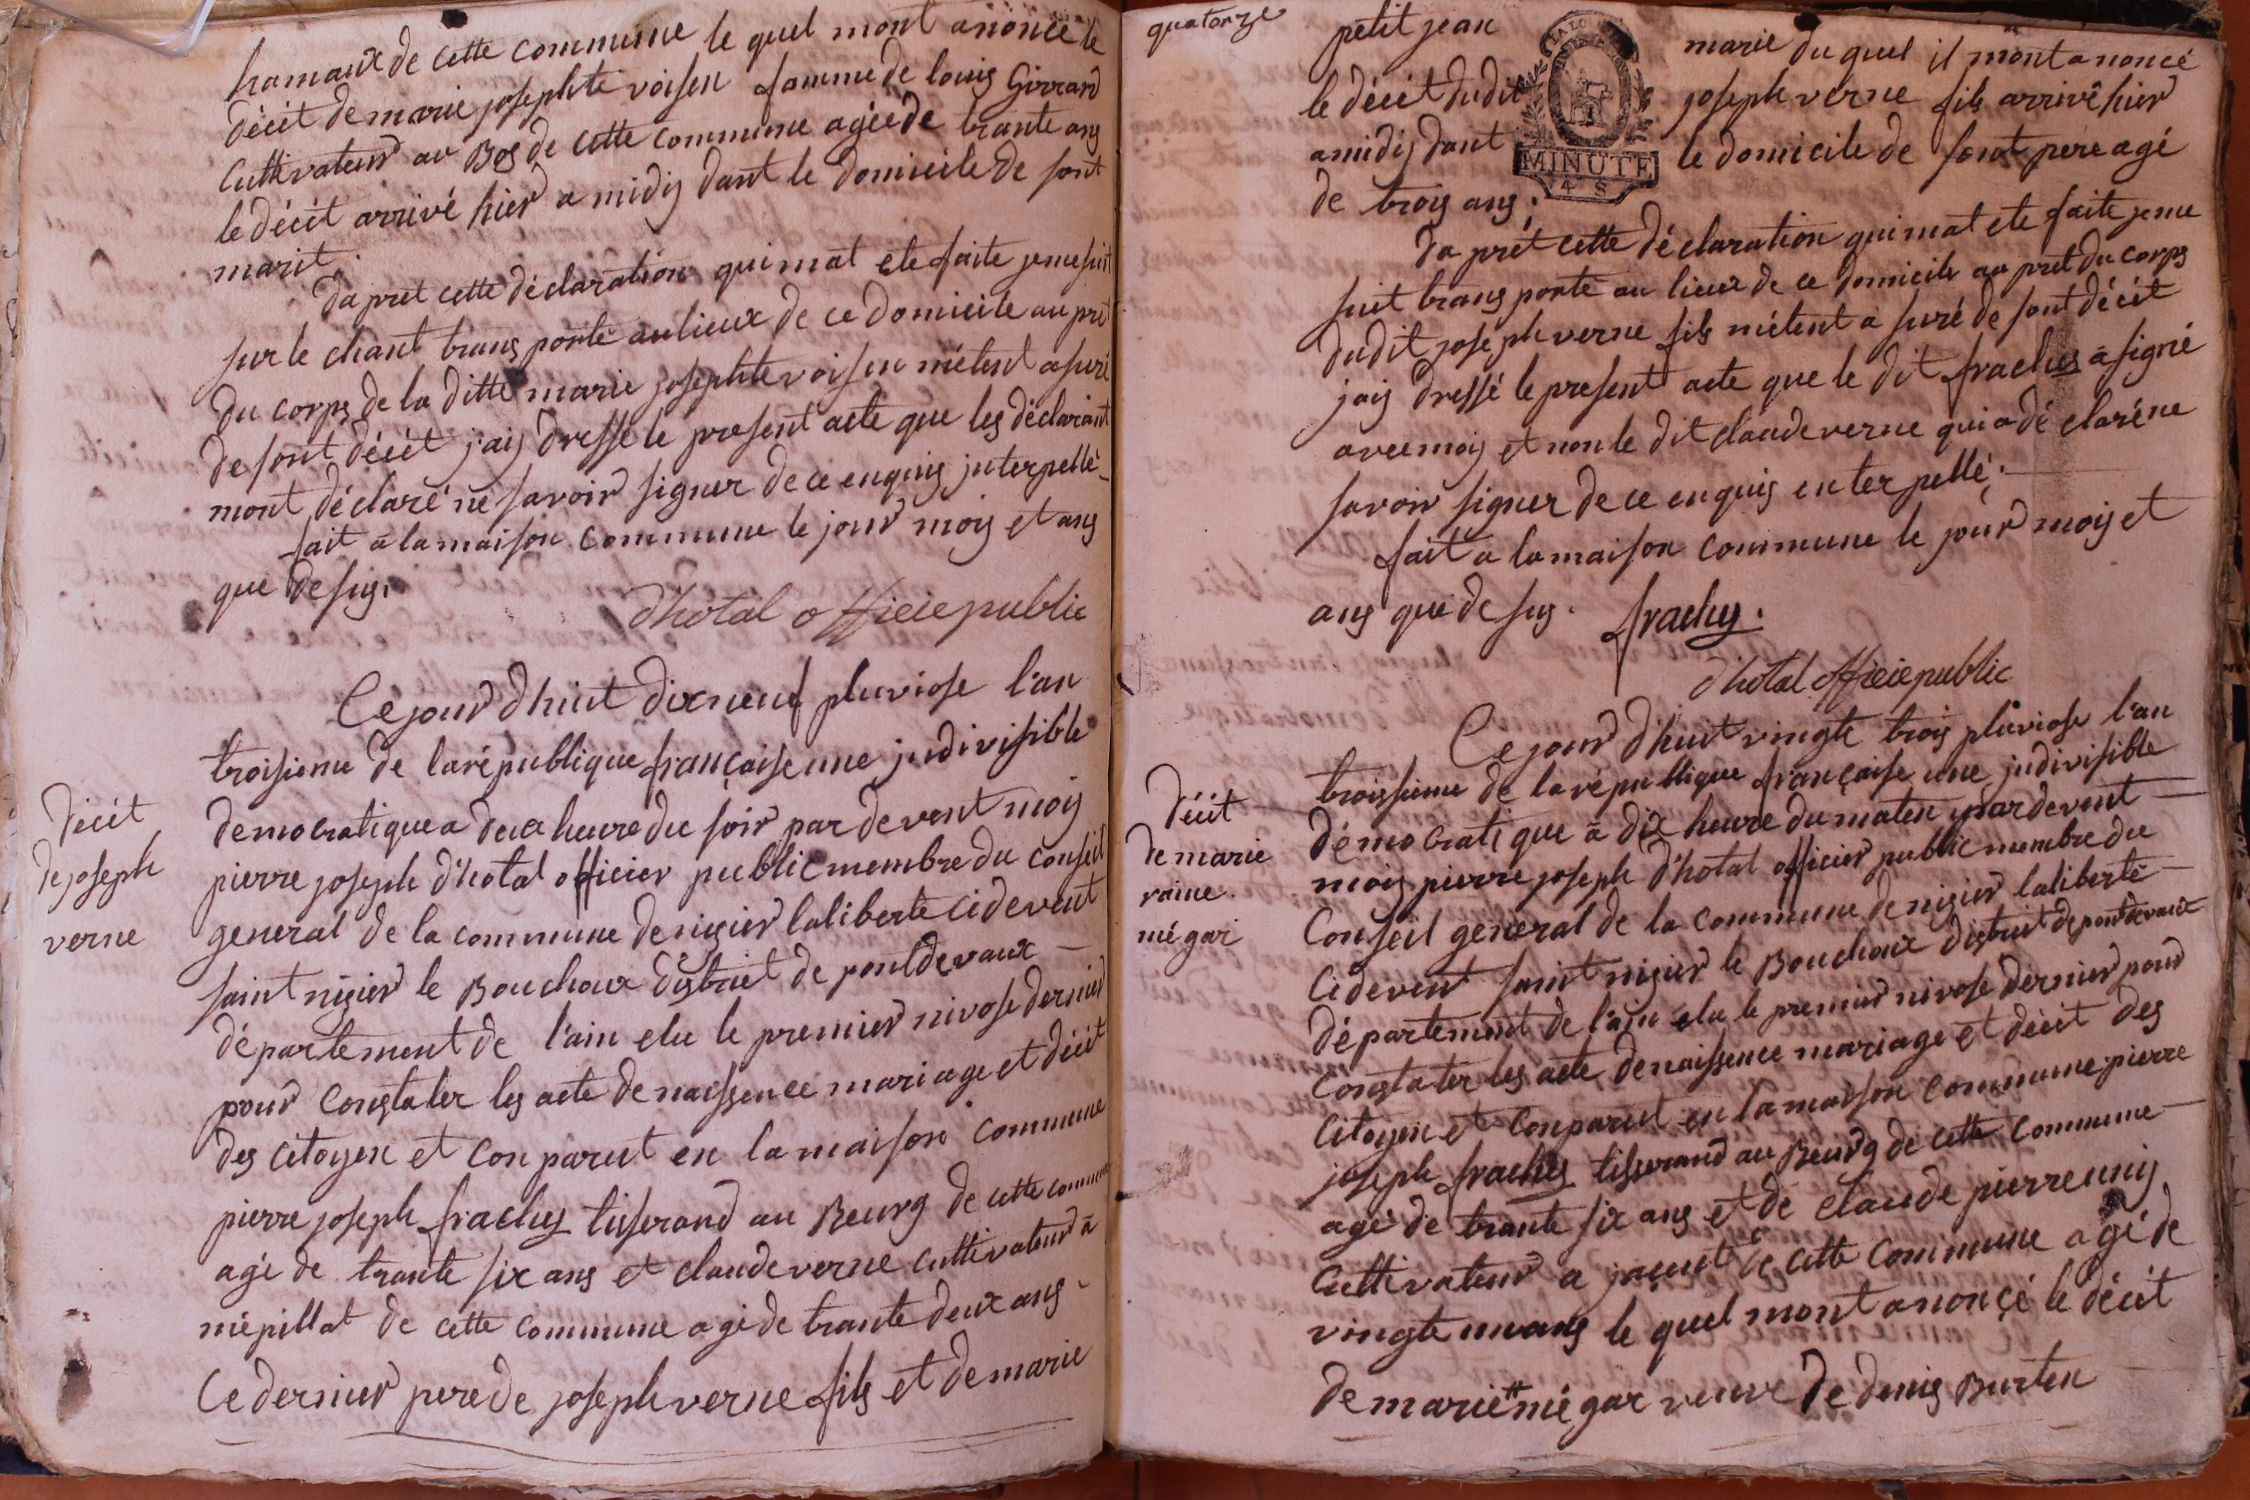 hamaux de cette commune le quel mont anoncé le
décit de marie josephte voisen famme de louis Girrard
cultivateur au Bos de cette commune agée de trante ans
le décit arrivé hier a midij dant le domicile de sont
marit.
da pret cette déclaration qui mat ete faite je me suit
sur le chant trans porté au lieux de ce domicile au pret
du corps de la ditte marie josephte voisen métent asuré
de sont décét j'aij dressé le present acte que les déclarant
mont déclaré ne savoir signer de ce enquis jnterpellé
fait a la maison commune le jour mois et ans
que desus.
d'hotal officie public
Ce jour d'huit dix neuf pluviose l'an
troisieme de la république française une jndivisible
democratique a deux heure du soir par devent moij
pierre joseph d'hotal officier public membre du conseil
general de la commune de nizier laliberte cidevent
saint nizier le Bouchoux district de pontdevaux
département de l'ain elu le premier nivose dernier
pour constater les acte de naissence mariage et décit
des citoyen et conparut en la maison commune
pierre joseph frachis tisserand au Beurg de cette commune
agé de trante six ans et claude verne cultivateur à
mépillat de cette commune agé de trante deux ans
Ce dernier pere de joseph verne fils et de marie
décit
de joseph
verne
quatorze
petit jean marie du quel il mont anoncé
le décit dudit joseph verne fils arrivé hier
a midij dant le domicile de sont pere agé
de trois ans;
MINUTE
4 S
da prét cette déclaration qui mat ete faite je me
suit trans porté au lieux de ce domicile au prêt du corps
dudit joseph verne fils métent a suré de sont décit
jaij dressé le present acte que le dit frachis a signé
avec moij et non le dit claude verne qui a dé claré ne
savoir signer de ce enquis enter pellé;
fait a la maison commune le jour mois et
ans que desus. frachis.
d'hotal officie public
Ce jour d'huit vingte trois pluviose l'an
troissieme de la république française une jndivisible
démocratique à dix heure du maten par devent
moij pierre joseph d'hotal officier public membre du
Conseil general de la commune de nizier laliberté
Cidevent saint nizier le Bouchoux district de pontdevaux
département de l'ain elu le premier nivose dernier pour
constater les acte de naissence mariage et décit des
Citoyen et conparut en la maison commune pierre
joseph frachis tisserand au Beurg de cette commune
agé de trante six ans et de claude pierre unij
cultivateur a jaçent de cette commune agé de
vingte un ans le quel mont anonçé le décit
de marie mégar veuve de denis Burten
décit
de marie
raime
mégar